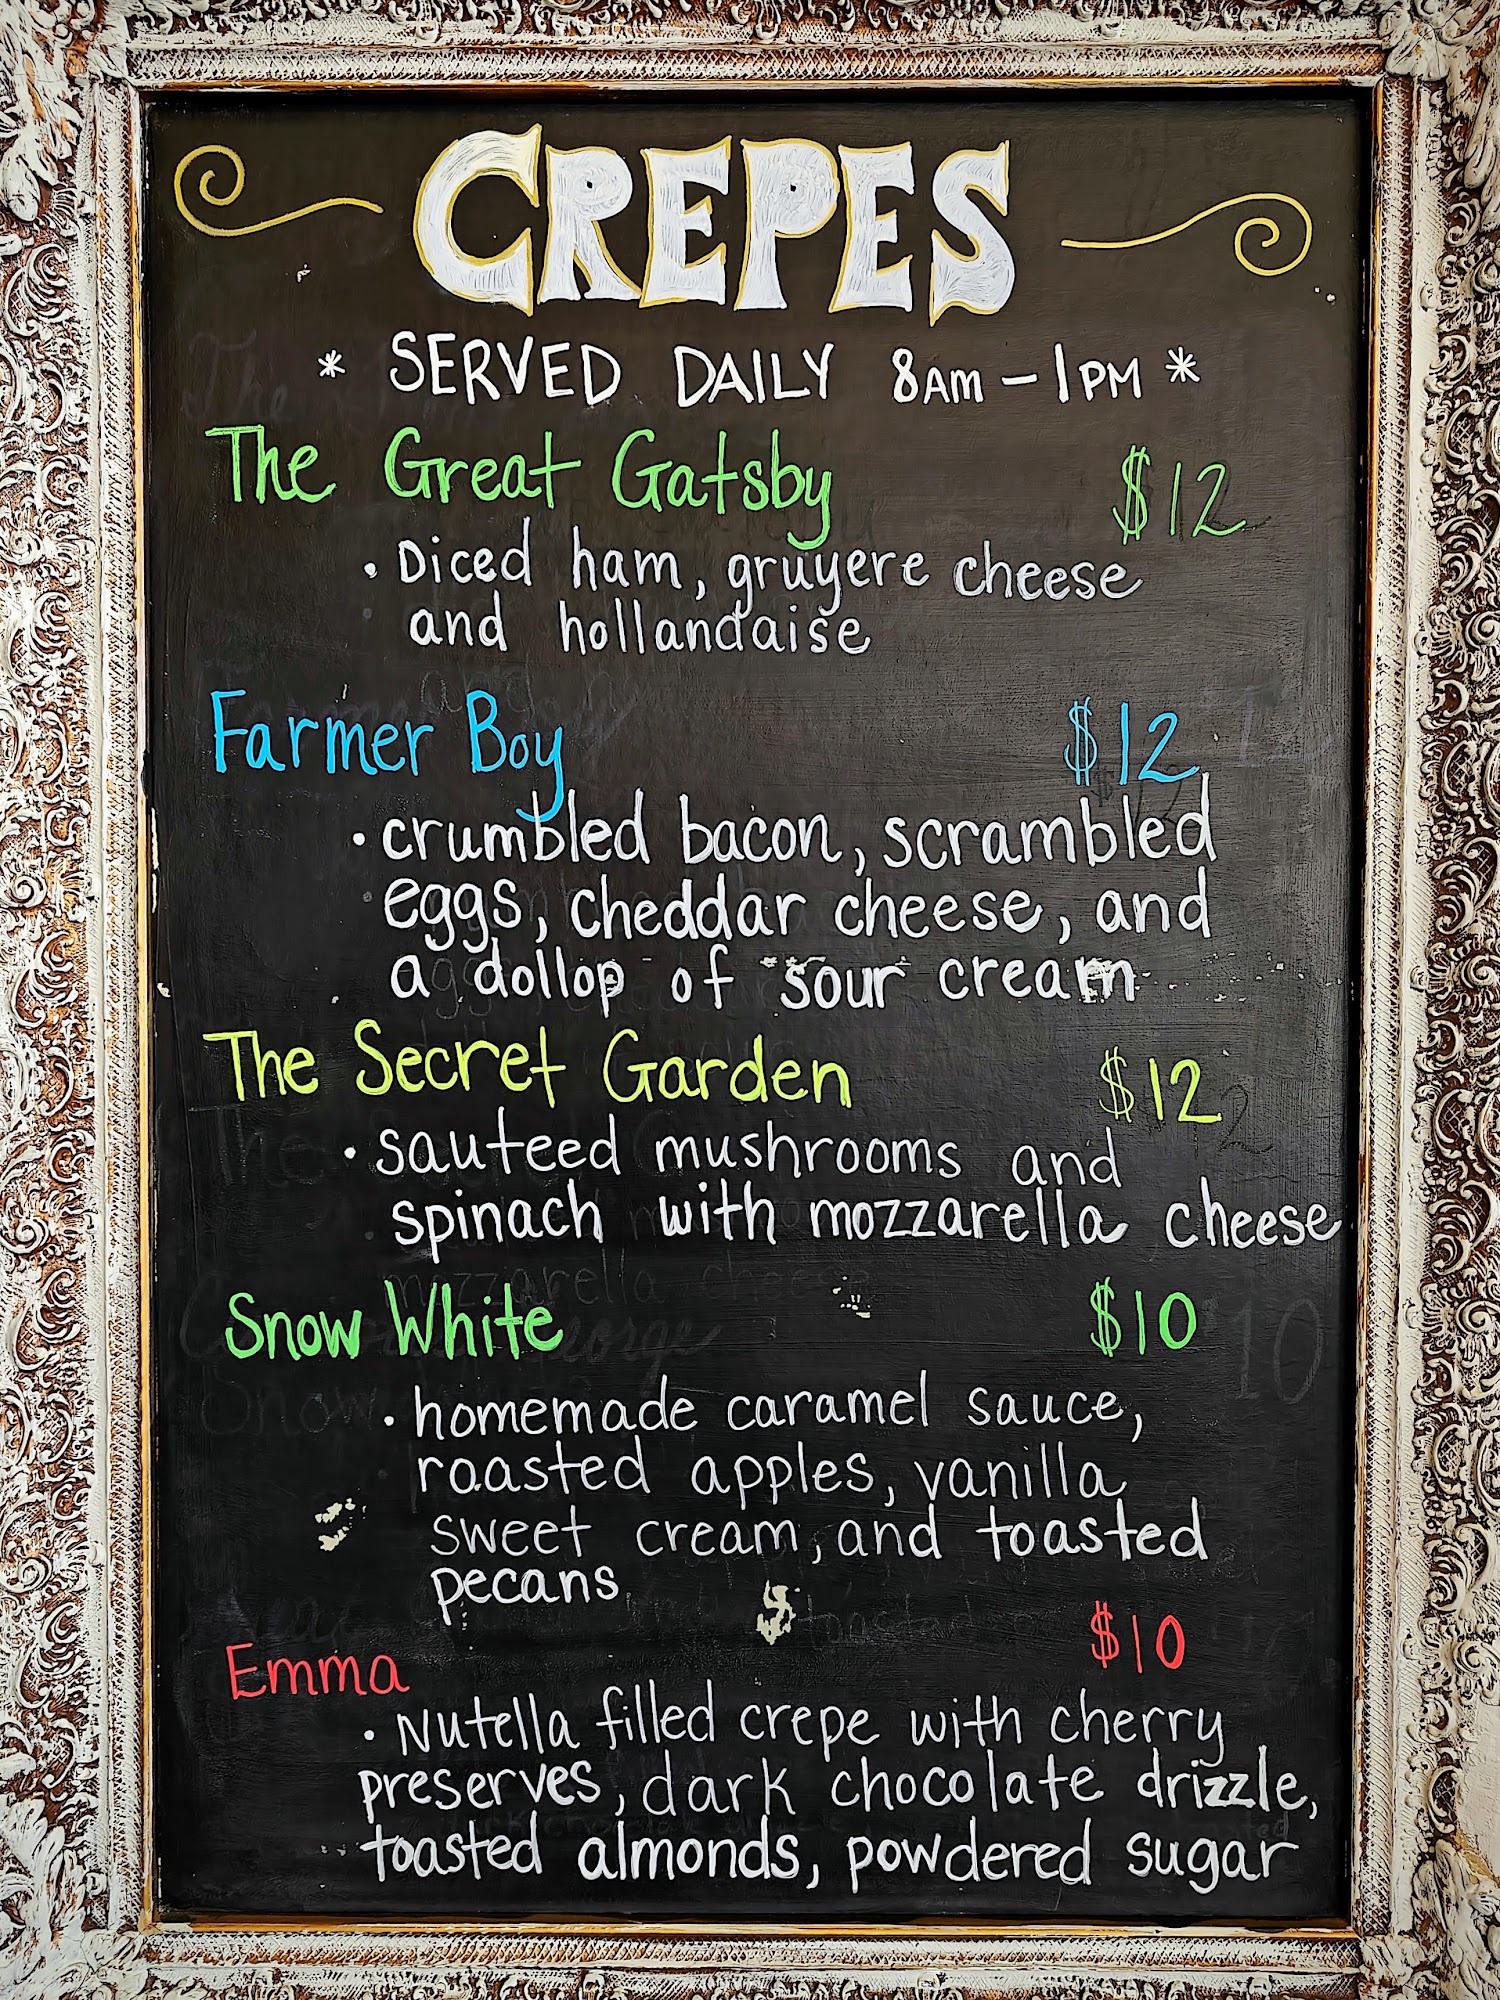 CREPES
* SERVED DAILY 8AM - 1PM *
The Great Gatsby $12
• Diced ham, gruyere cheese
and hollandaise
Farmer Boy $12
• crumbled bacon, scrambled
eggs, cheddar cheese, and
a dollop of sour cream
The Secret Garden $12
• sauteed mushrooms and
spinach with mozzarella cheese
Snow White $10
• homemade caramel sauce,
roasted apples, vanilla
sweet cream, and toasted
pecans
Emma $10
• Nutella filled crepe with cherry
preserves, dark chocolate drizzle,
toasted almonds, powdered sugar